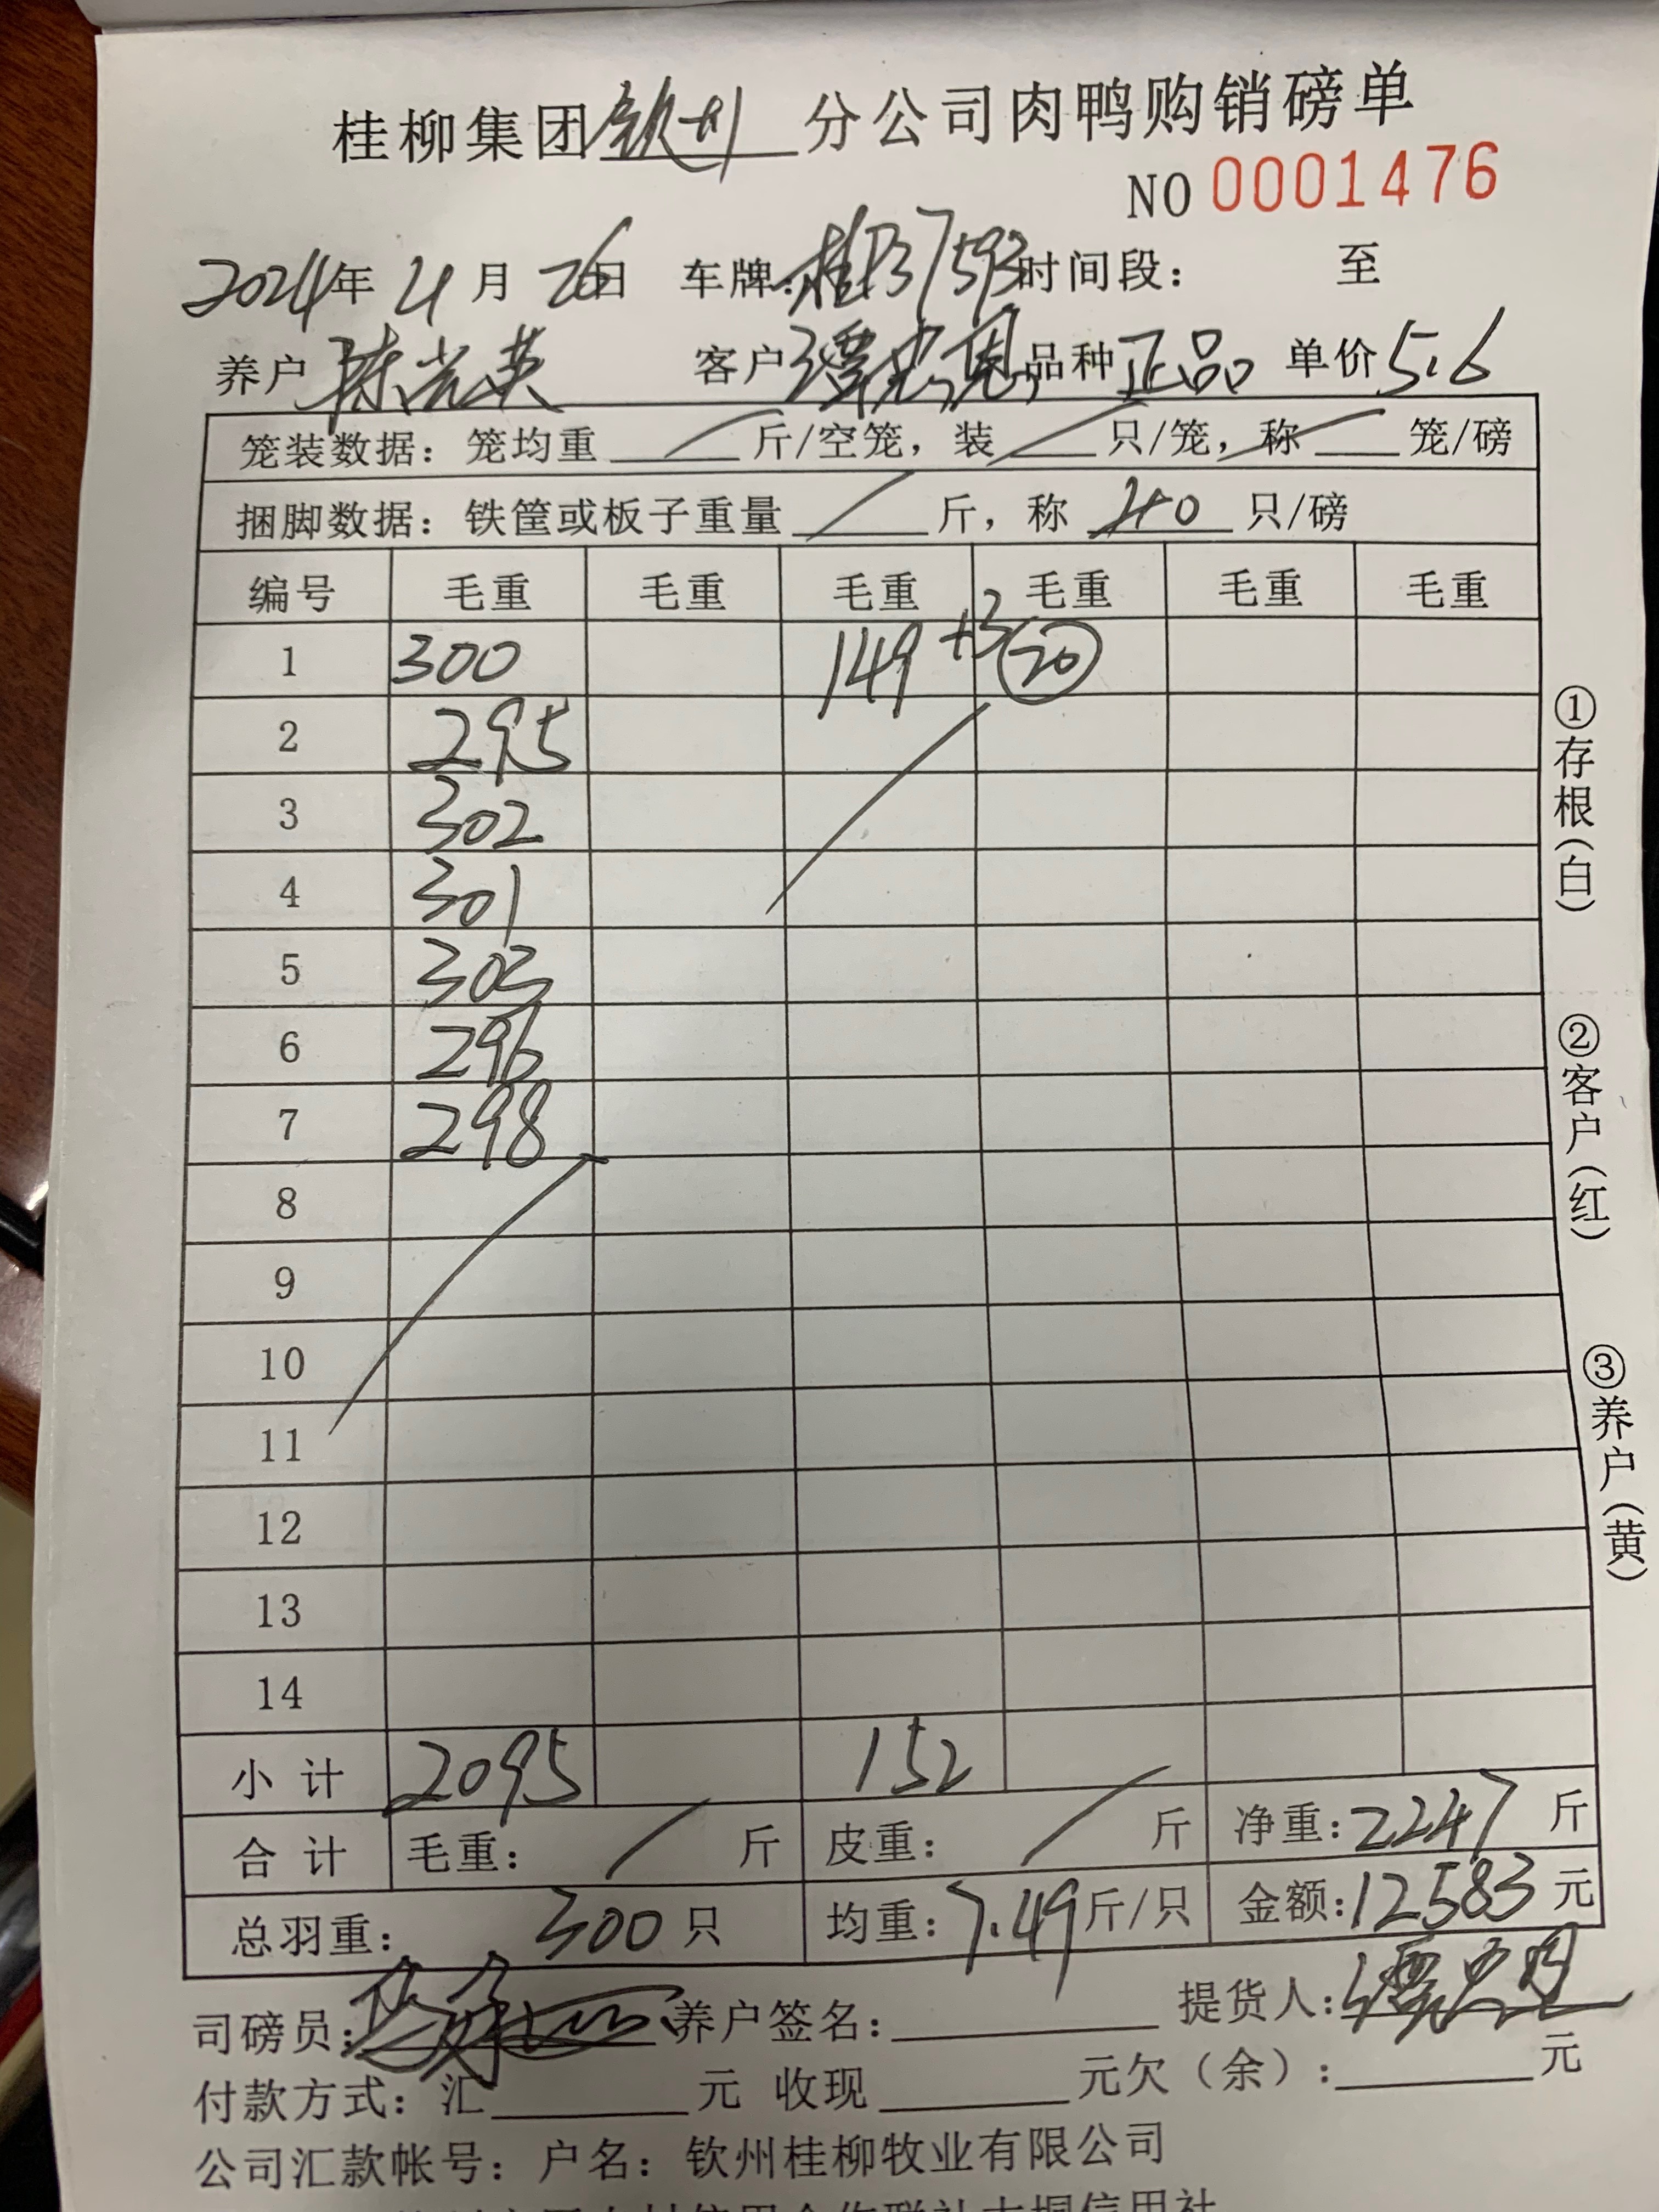 桂柳集团钦州分公司肉鸭购销磅单
NO 0001476
2024年 4月 26日 车牌:桂B37593 时间段: 至
养户 陈光英 客户 谭忠恩 品种 正品 单价 5.6
笼装数据: 笼均重 / 斤/空笼, 装 / 只/笼, 称 / 笼/磅
捆脚数据: 铁筐或板子重量 / 斤, 称 40 只/磅
编号 毛重 毛重 毛重 毛重 毛重 毛重
1 300 149 +3 20
2 295
3 302
4 301
5 303
6 296
7 298
8
9
10
11
12
13
14
小计 2095 152
合计 毛重: / 斤 皮重: / 斤 净重: 2247 斤
总羽重: 300 只 均重: 7.49 斤/只 金额: 12583 元
司磅员: 养户签名: 提货人:
付款方式: 汇 元 收现 元欠(余): 元
公司汇款帐号: 户名: 钦州桂柳牧业有限公司
①存根(白)
②客户(红)
③养户(黄)